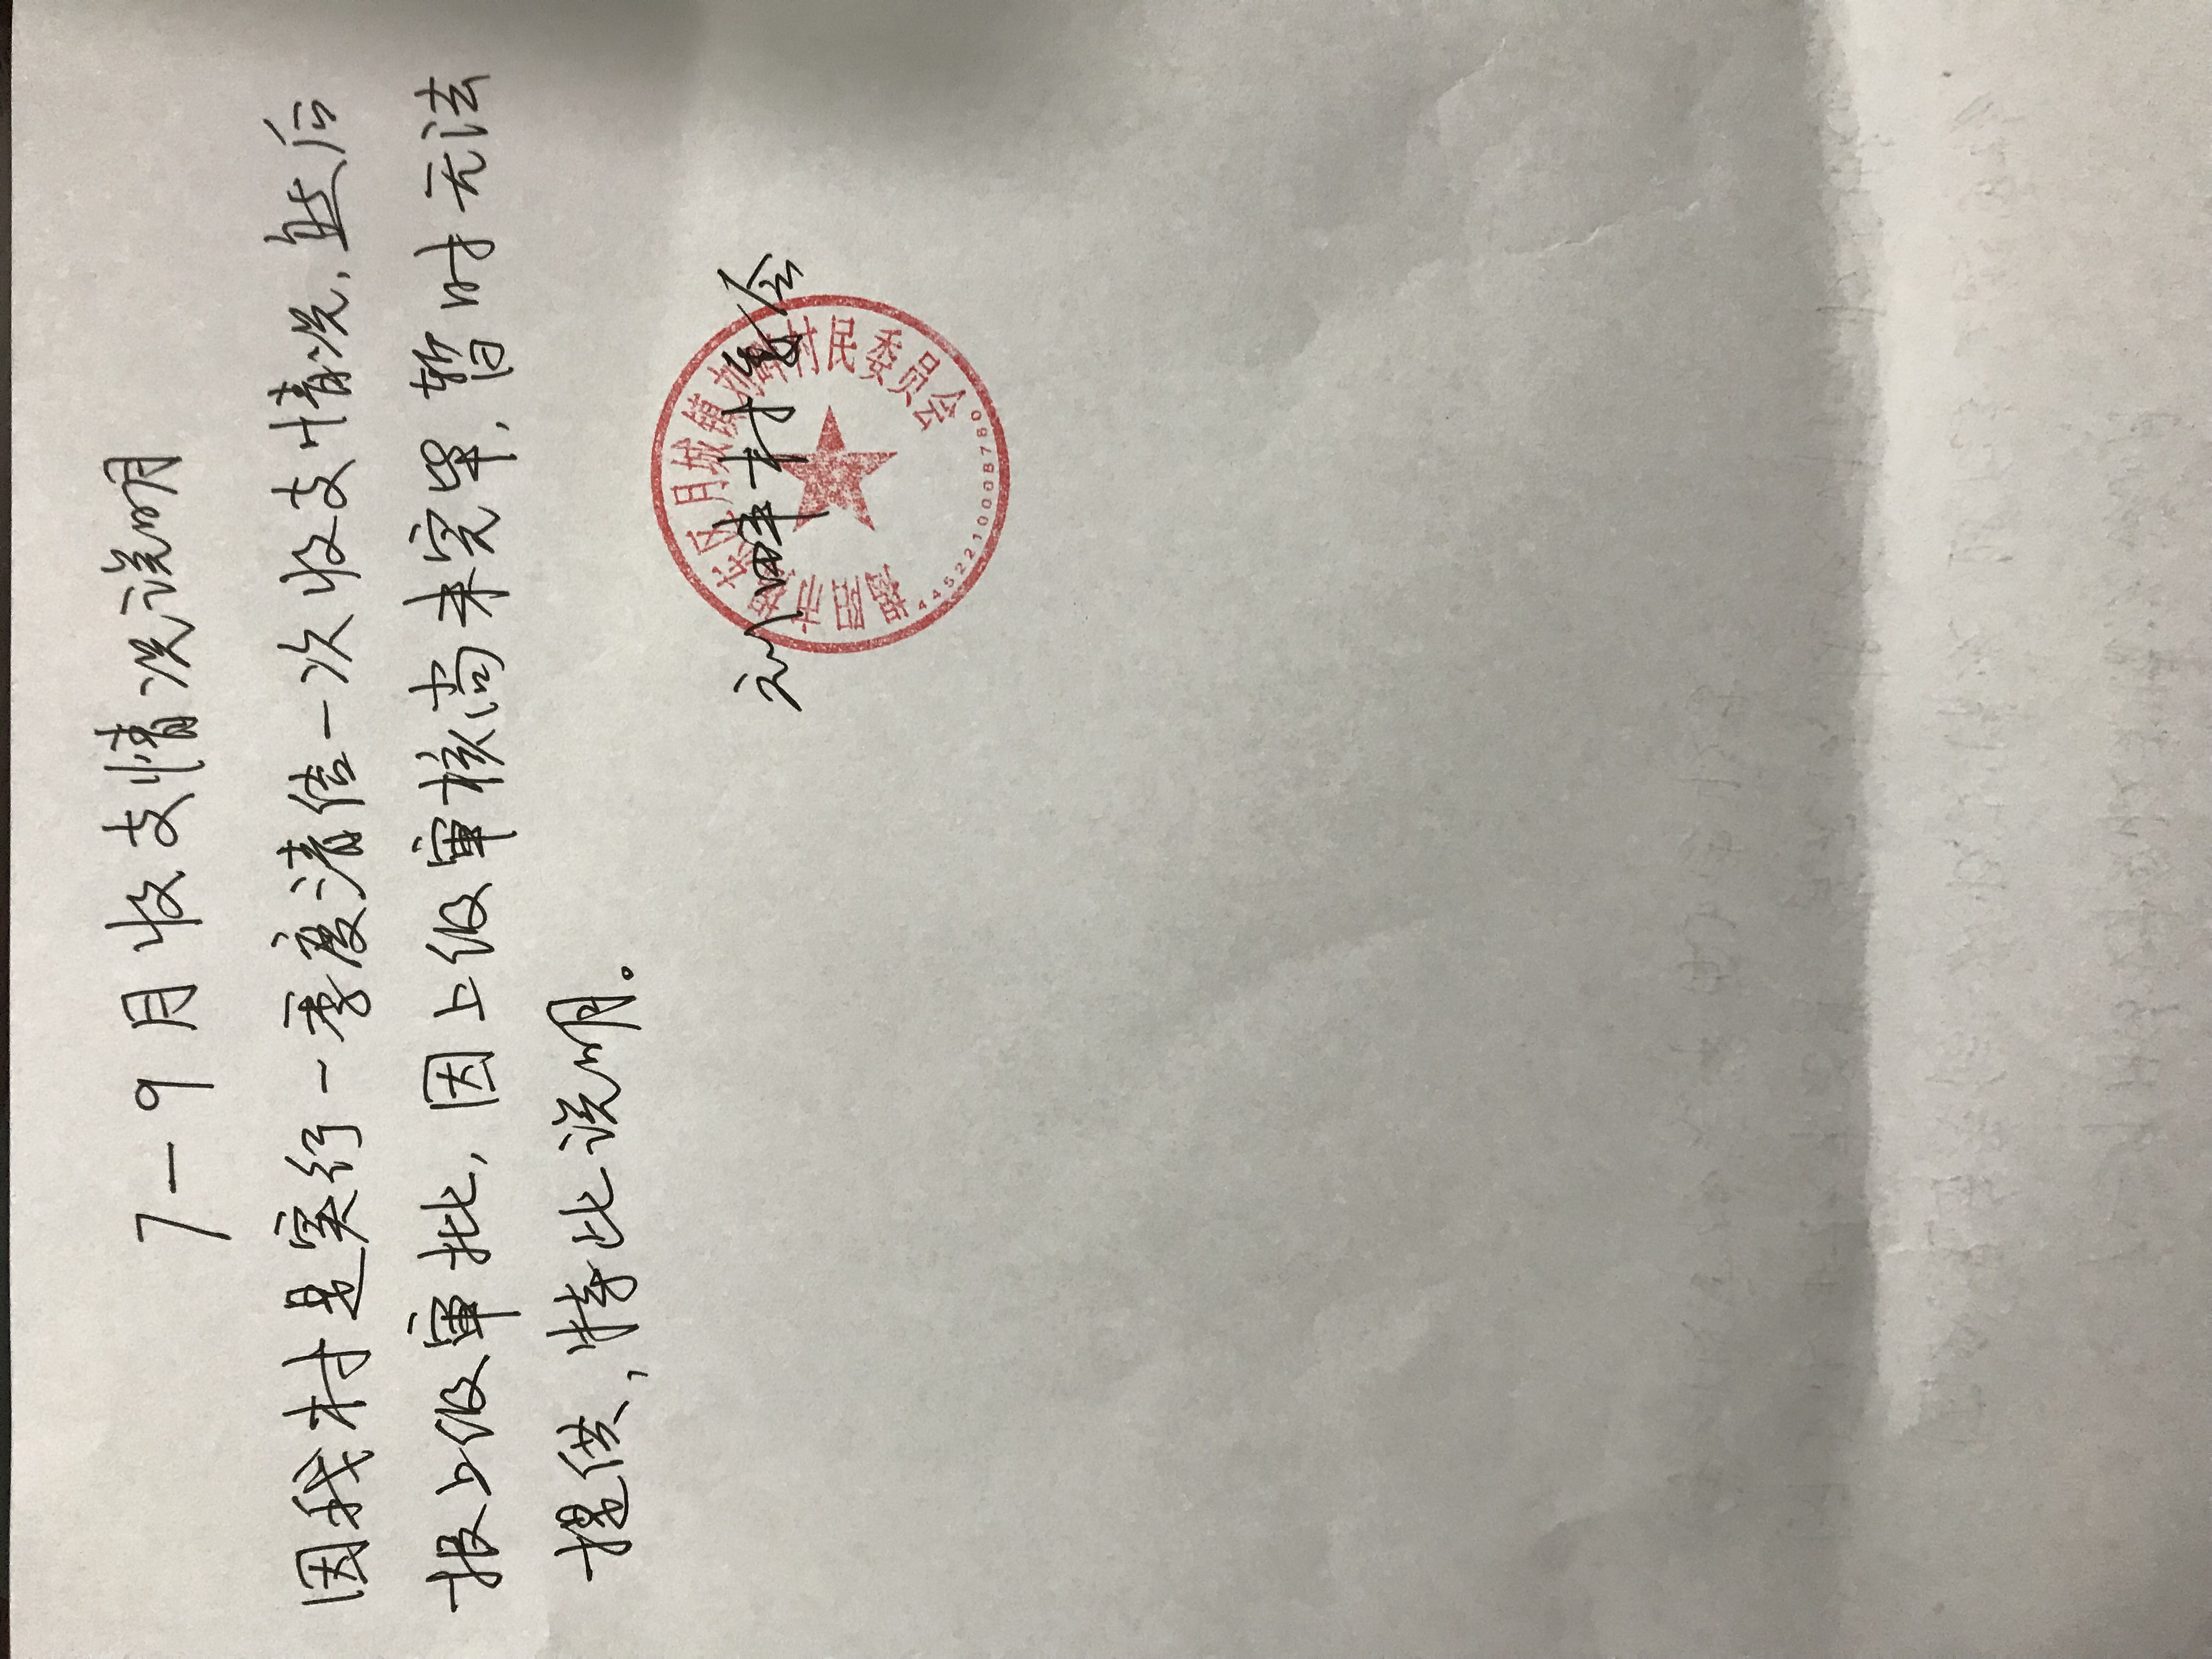 7-9月收支情况说明
因我村是实行一季度清结一次收支情况,然后
报上级审批,因上级审核尚未完毕,暂时无法
提供,特此说明。
刘畔村委会
揭阳市揭东区月城镇刘畔村民委员会
4452210008780